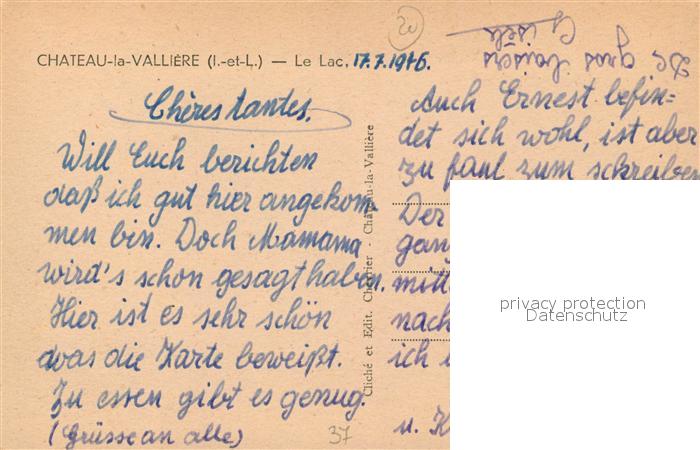 CHATEAU-la-VALLIÈRE (I.-et-L.) — Le Lac, 17.7.1946.
20
Chères tantes,
Will Euch berichten
daß ich gut hier angekom
men bin. Doch Mamama
wird's schon gesagt haben.
Hier ist es sehr schön
was die Karte beweißt.
Zu essen gibt es genug.
(Grüsse an alle)
37
Cliché et Edit. Chevrier - Château-la-Vallière
Auch Ernest befin=
det sich wohl, ist aber
zu faul zum schreiben
Der
gan
mitt
nach
ich
u. K
De gros baisers
Gisèle
privacy protection
Datenschutz